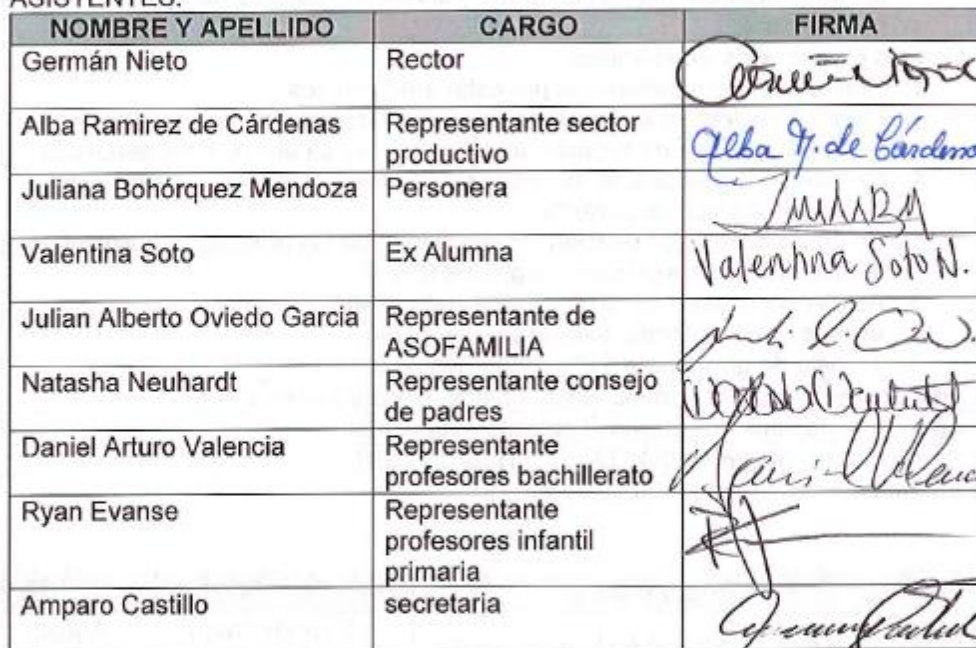 ASISTENTES:
NOMBRE Y APELLIDO CARGO FIRMA
Germán Nieto Rector
Alba Ramirez de Cárdenas Representante sector
productivo Alba R. de Cárdenas
Juliana Bohórquez Mendoza Personera
Valentina Soto Ex Alumna Valentina Soto N.
Julian Alberto Oviedo Garcia Representante de
ASOFAMILIA
Natasha Neuhardt Representante consejo
de padres
Daniel Arturo Valencia Representante
profesores bachillerato
Ryan Evanse Representante
profesores infantil
primaria
Amparo Castillo secretaria